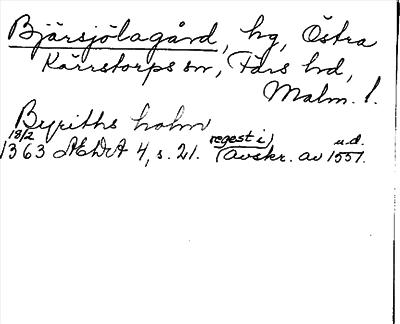 Bjärsjölagård, hg, Östra
Kärrstorps sn, Färs hd,
Malm. l.
Byriths holm
18/2
1363 ÆDA 4, s. 21. (regest i avskr. av 1551. u.d.)